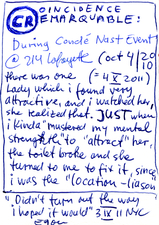 CR OINCIDENCE
EMARQUABLE:
During Condé Nast Event
@ 214 Lafayette (oct 4/20
10
there was one (= 4 X 2011)
Lady which i found very
attractive, and i watched her,
she realized that. JUST when
i kinda "mustered my mental
strength" to "attract" her,
the toilet broke and she
turned to me to fix it, since
i was the "location-liason
"Didn't turn out the way
i hoped it would" 3 IX 11 NYC